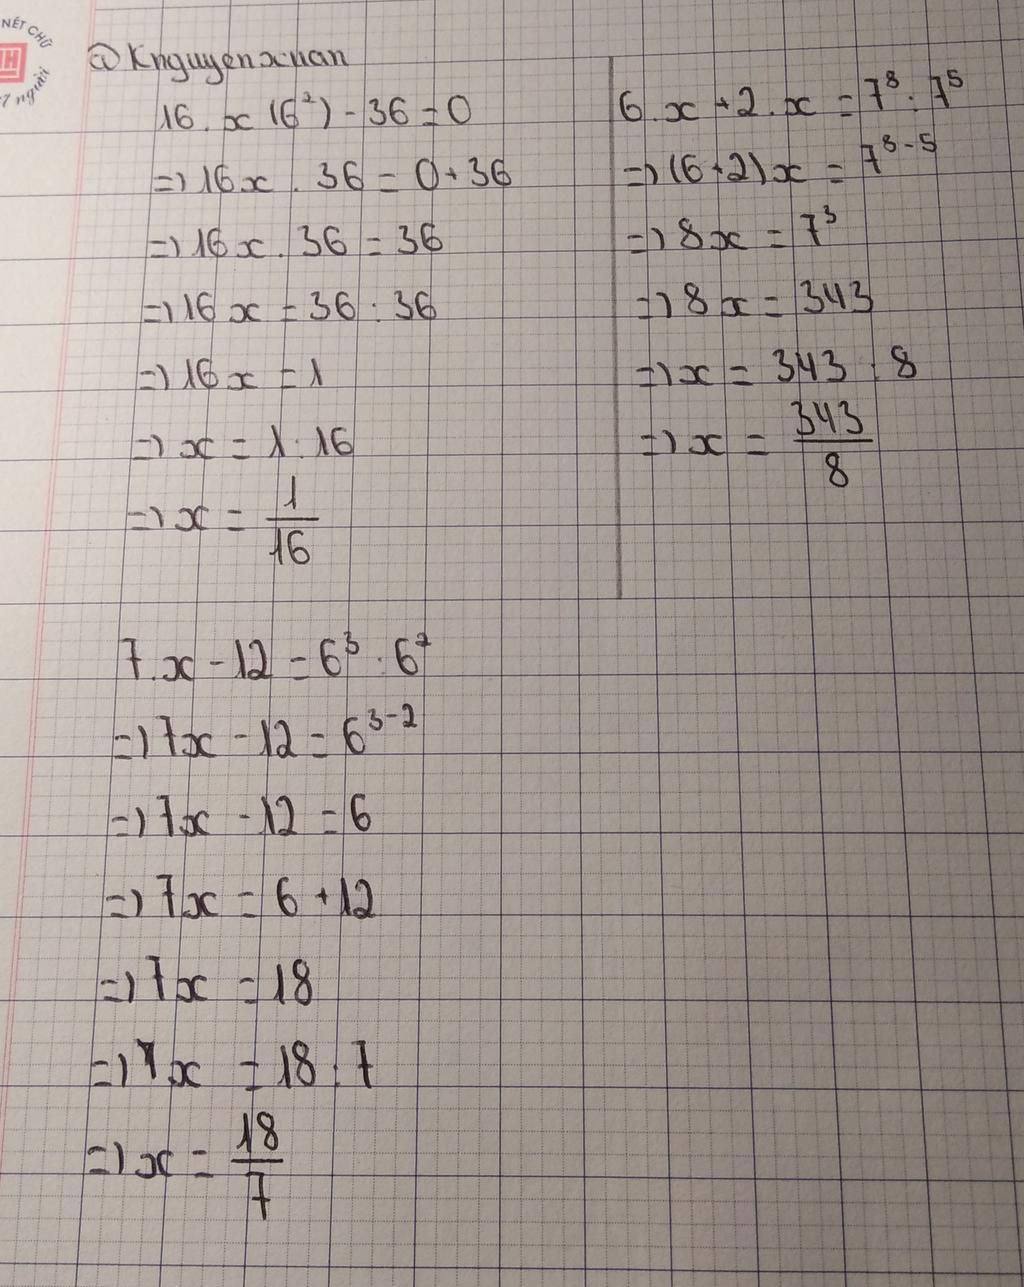 NÉT CHỮ
H
7 người
@Knguyenxuan
16.x(6²)-36=0
=>16x.36=0+36
=>16x.36=36
=>16x=36:36
=>16x=1
=>x=1:16
=>x=1/16
6.x+2.x=7⁸:7⁵
=>(6+2)x=7⁸⁻⁵
=>8x=7³
=>8x=343
=>x=343:8
=>x=343/8
7.x-12=6³:6²
=>7x-12=6³⁻²
=>7x-12=6
=>7x=6+12
=>7x=18
=>7x=18:7
=>x=18/7